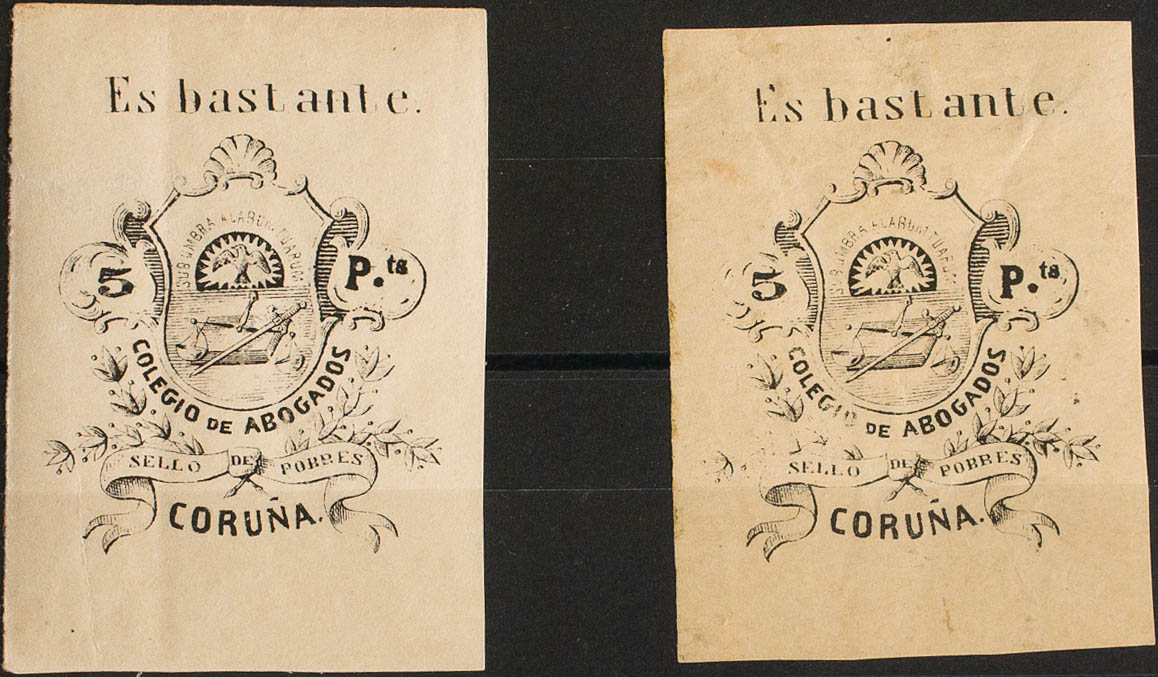 Es bastante.
SUB UMBRA ALARUM TUARUM
5 P.ts
COLEGIO DE ABOGADOS
SELLO DE POBRES
CORUÑA.
Es bastante.
SUB UMBRA ALARUM TUARUM
5 P.ts
COLEGIO DE ABOGADOS
SELLO DE POBRES
CORUÑA.